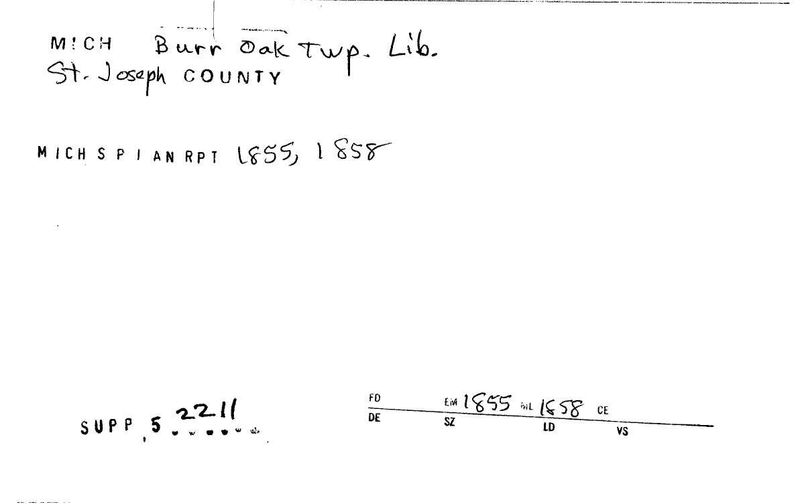 MICH Burr Oak Twp. Lib.
St. Joseph COUNTY
MICH S P I AN RPT 1855, 1858
SUPP 5 2211
FD EM 1855 ML 1858 CE
DE SZ LD VS